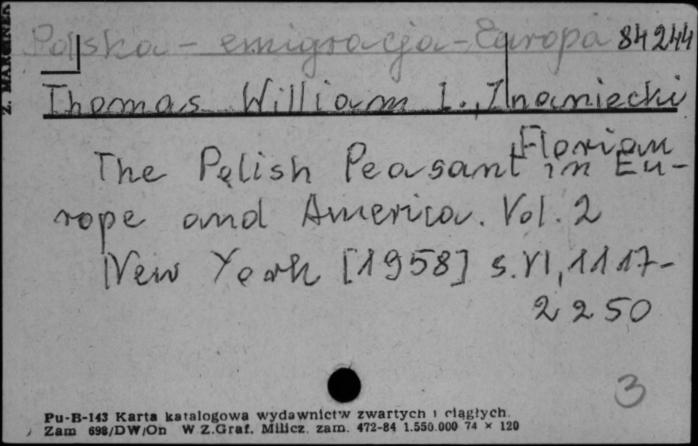 Polska - emigracja - Europa 84244
Z. MARCINEK
Thomas William I., Znaniecki
Florian
The Polish Peasant in Eu-
rope and America. Vol. 2
New York [1958] s. VI, 1117-
2250
3
Pu-B-143 Karta katalogowa wydawnictw zwartych i ciągłych.
Zam 698/DW/On W Z.Graf. Milicz. zam. 472-84 1.550.000 74 × 120